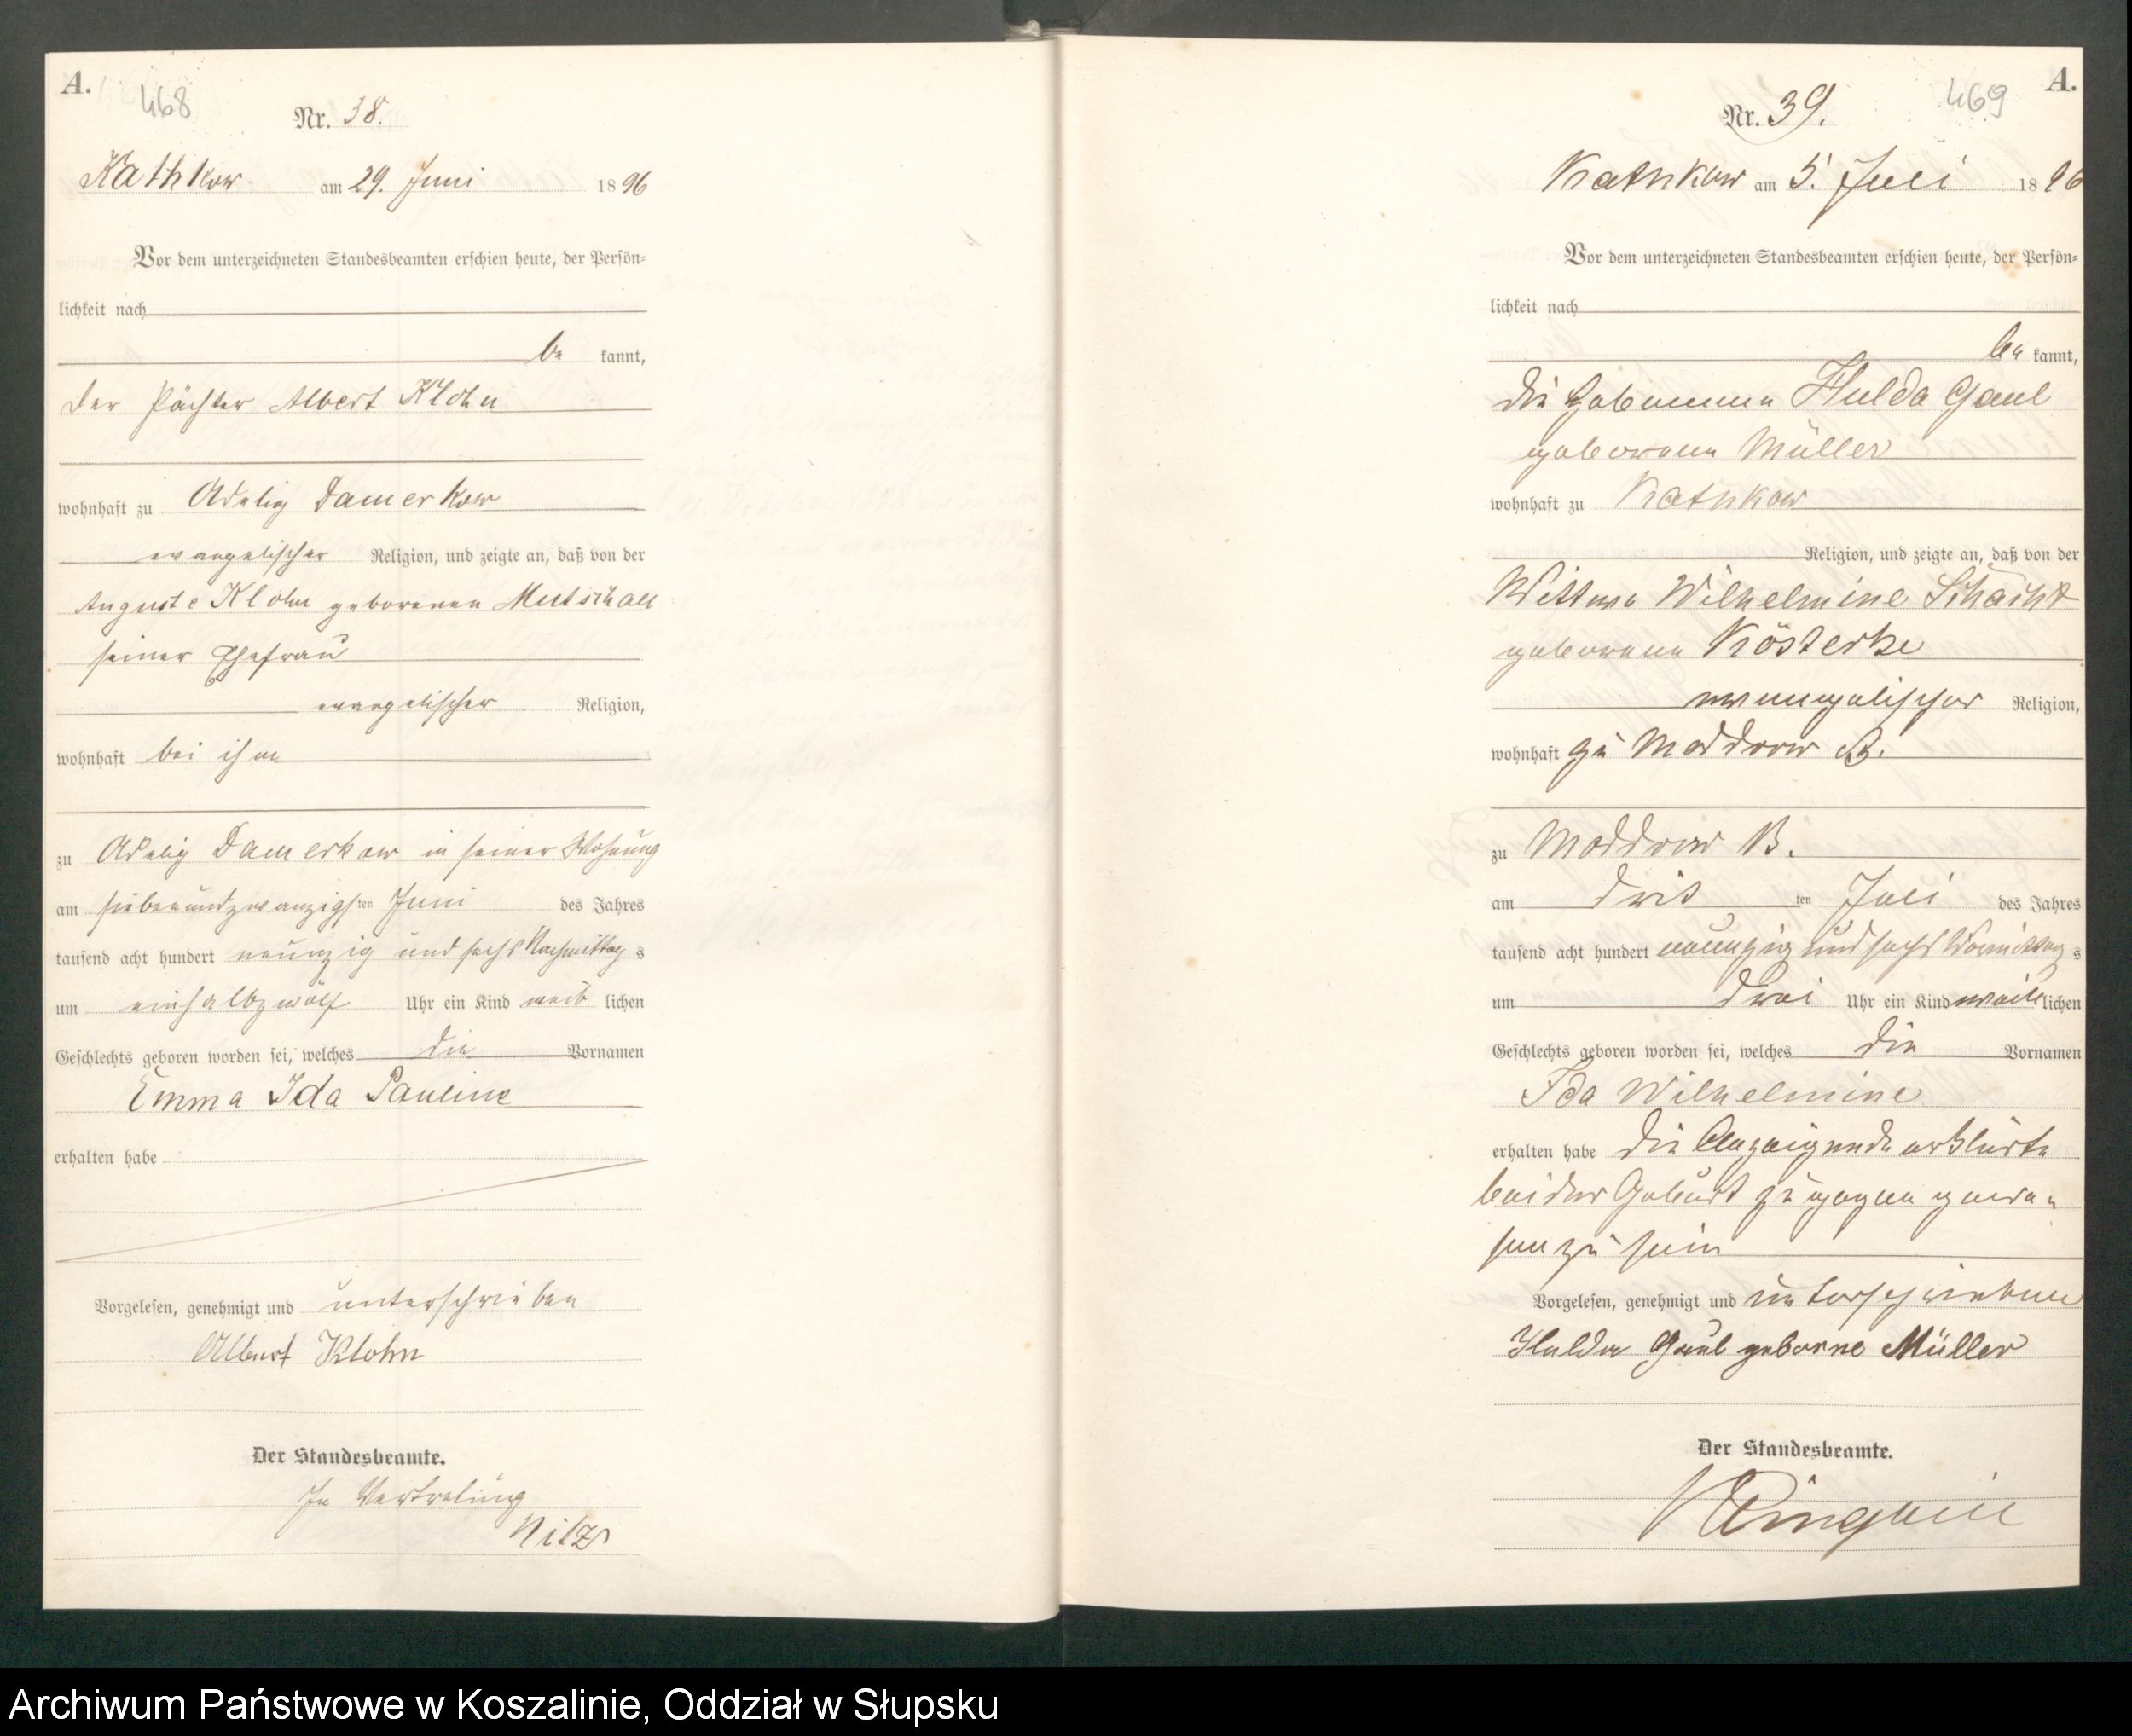 A.
468
Nr. 38.
Kathkow am 29. Juni 1896
Vor dem unterzeichneten Standesbeamten erschien heute, der Persön-
lichkeit nach
be kannt,
der Pächter Albert Klohn
wohnhaft zu Adelig Damerkow
evangelischer Religion, und zeigte an, daß von der
Auguste Klohn geborenen Mutschall
seiner Ehefrau
evangelischer Religion,
wohnhaft bei ihm
zu Adelig Damerkow in seiner Wohnung
am siebenundzwanzigsten Juni des Jahres
tausend acht hundert neunzig und sechs Nachmittags
um einhalbzwölf Uhr ein Kind weib lichen
Geschlechts geboren worden sei, welches die Vornamen
Emma Ida Pauline
erhalten habe
Vorgelesen, genehmigt und unterschrieben
Albert Klohn
Der Standesbeamte.
In Vertretung
A.
469
Nr. 39.
Kathkow am 5. Juli 1896
Vor dem unterzeichneten Standesbeamten erschien heute, der Persön-
lichkeit nach
be kannt,
die Hebamme Hulda Gaul
geborene Müller
wohnhaft zu Kathkow
Religion, und zeigte an, daß von der
Wittwe Wilhelmine Schacht
geborene Kösterke
evangelischer Religion,
wohnhaft zu Moddrow B.
zu Moddrow B.
am drit ten Juli des Jahres
tausend acht hundert neunzig und sechs Vormittags
um drei Uhr ein Kind weiblichen
Geschlechts geboren worden sei, welches die Vornamen
Ida Wilhelmine
erhalten habe die Anzeigende erklärte
bei der Geburt zugegen gewe-
sen zu sein
Vorgelesen, genehmigt und unterschrieben
Hulda Gaul geborne Müller
Der Standesbeamte.
Archiwum Państwowe w Koszalinie, Oddział w Słupsku